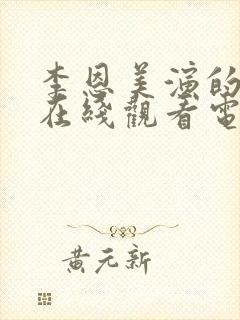 李恩美演的
在綫觀看電
黄元新